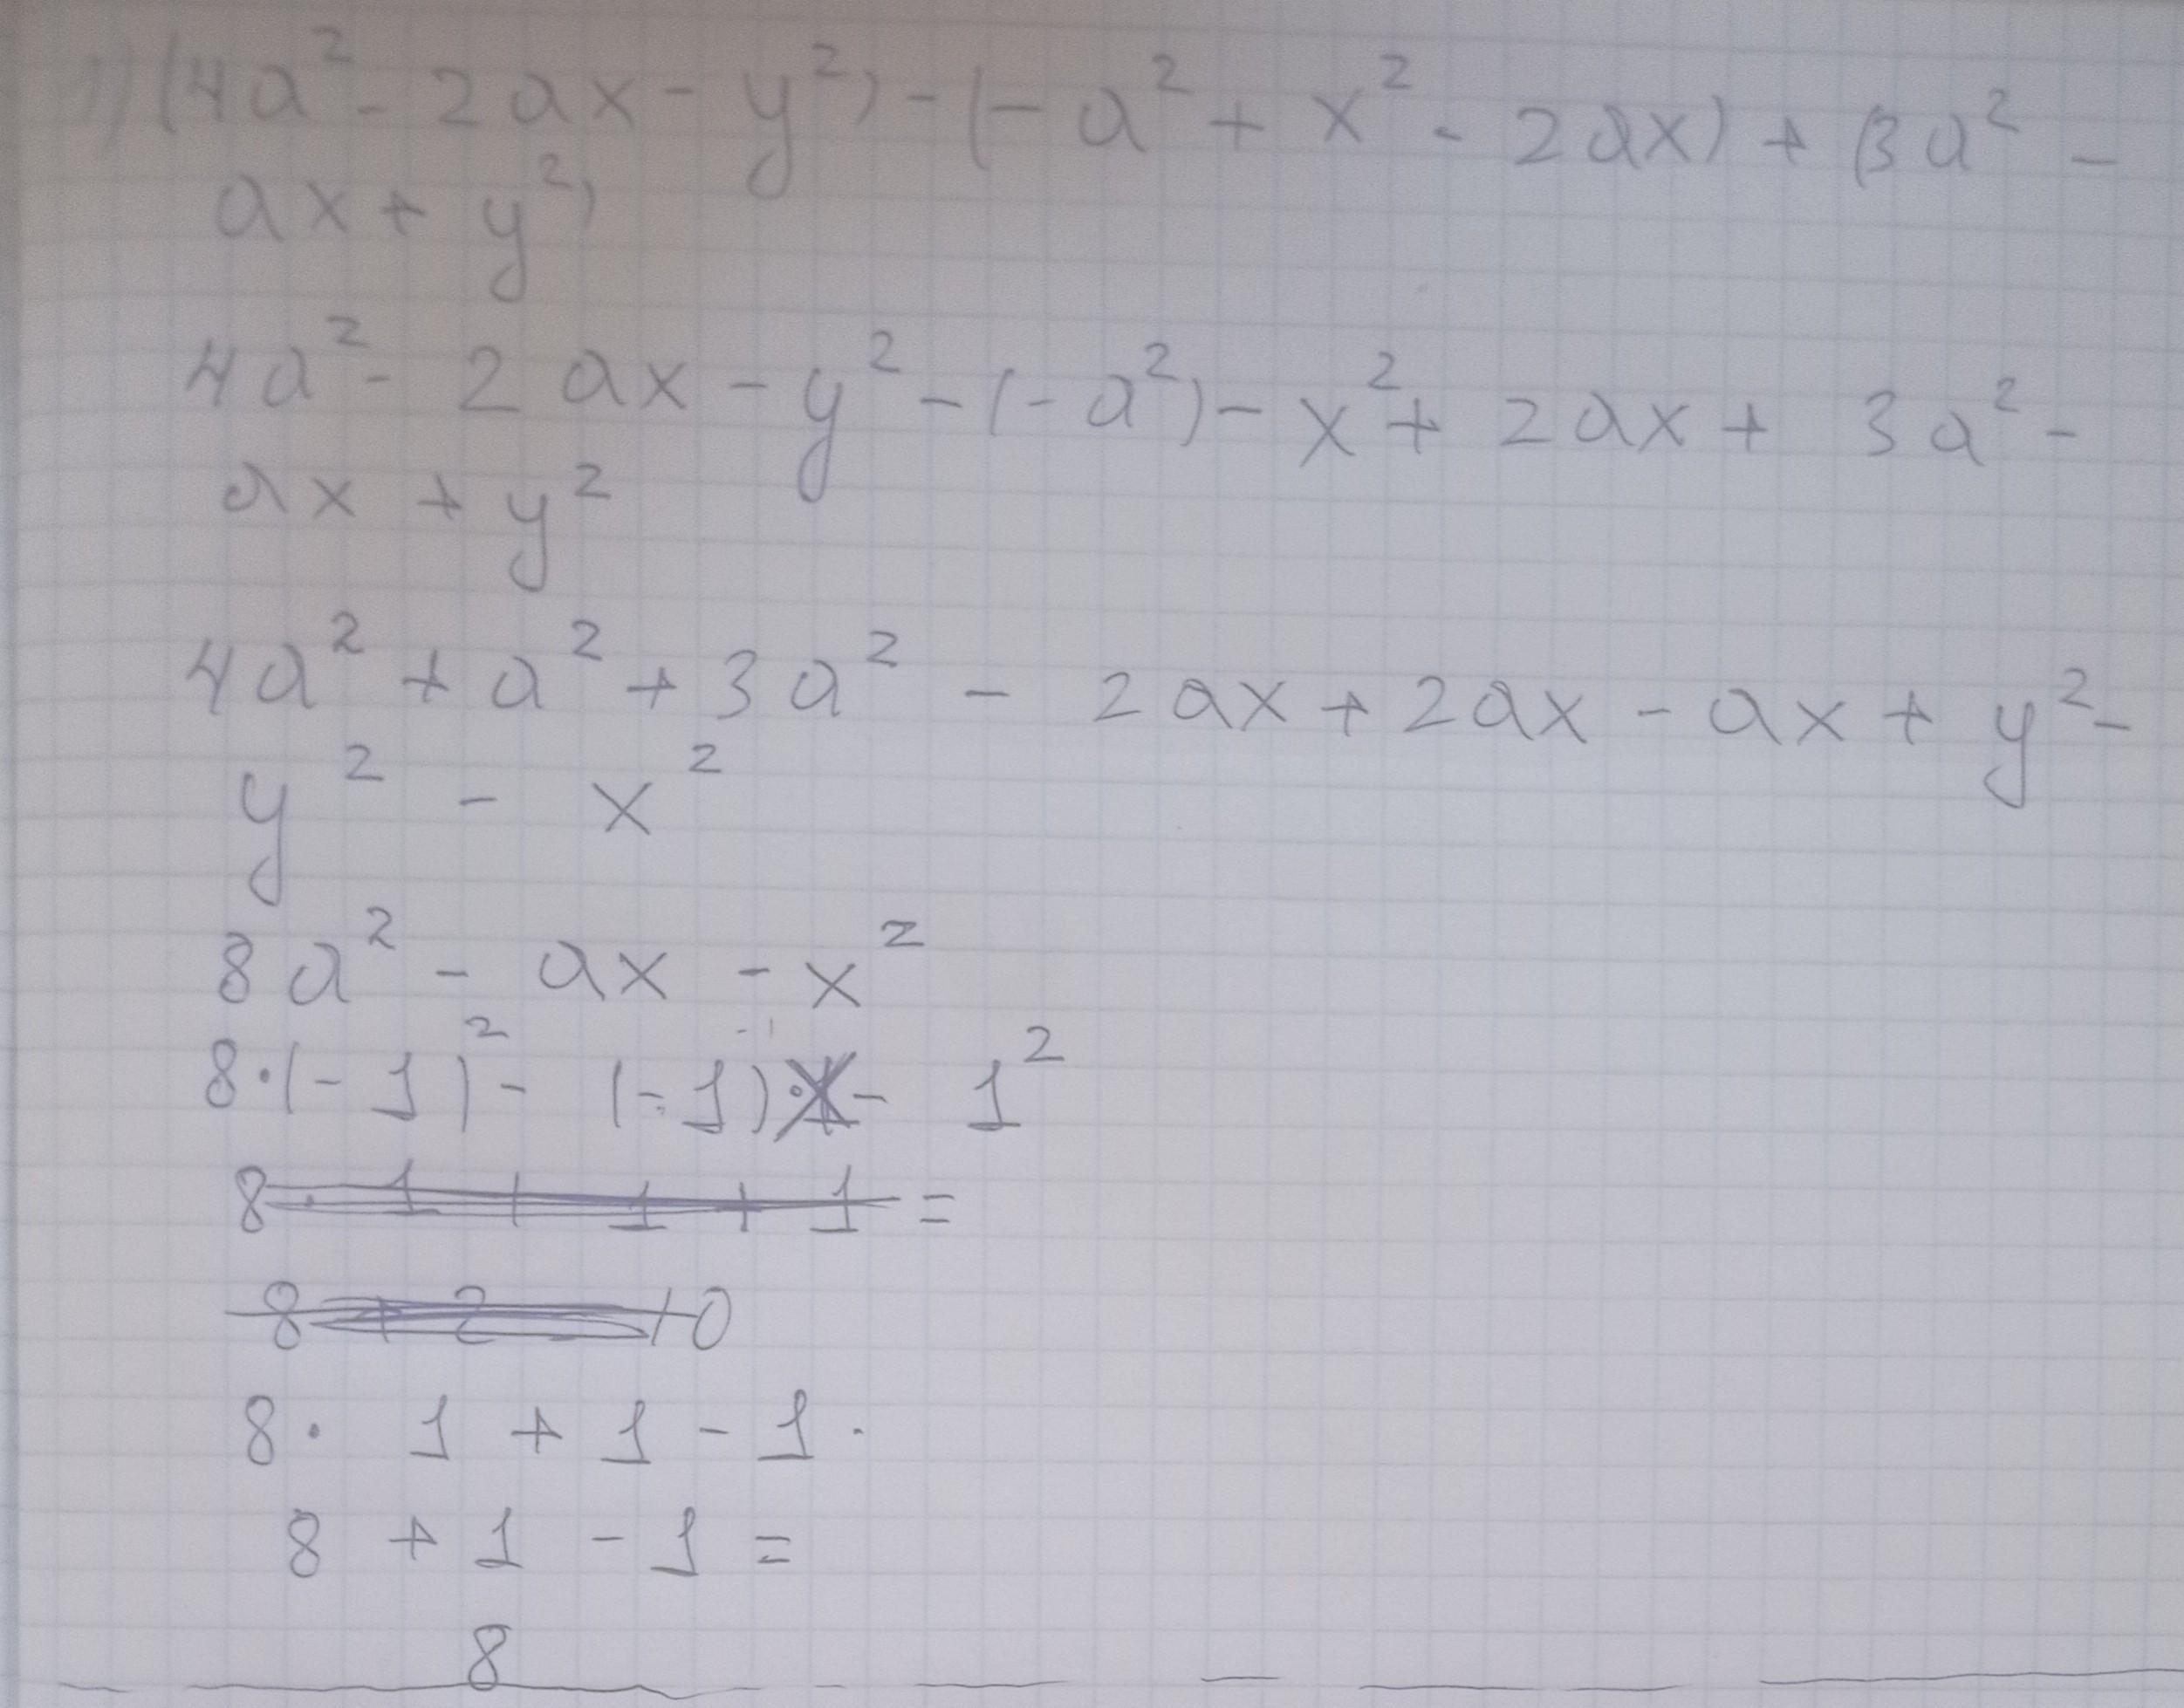 1) (4a² - 2ax - y²) - (- a² + x² - 2ax) + (3a² -
ax + y²)
4a² - 2ax - y² - (-a²) - x² + 2ax + 3a² -
ax + y²
4a² + a² + 3a² - 2ax + 2ax - ax + y² -
y² - x²
8a² - ax - x²
8·(-1)² - (-1) - 1²
8 · 1 + 1 + 1 =
8 + 2 = 10
8 · 1 + 1 - 1 ·
8 + 1 - 1 =
8